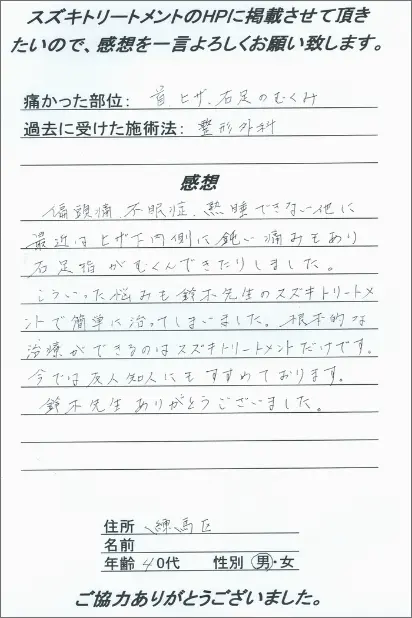 スズキトリートメントのHPに掲載させて頂き
たいので、感想を一言よろしくお願い致します。
痛かった部位: 首、ヒザ、右足のむくみ
過去に受けた施術法: 整形外科
感想
偏頭痛、不眠症、熟睡できない他に
最近はヒザ下内側に鈍い痛みもあり
右足指がむくんできたりしました。
こういった悩みも鈴木先生のスズキトリートメ
ントで簡単に治ってしまいました。根本的な
治療ができるのはスズキトリートメントだけです。
今では友人知人にもすすめております。
鈴木先生ありがとうございました。
住所 練馬区
名前
年齢 40代 性別 男・女
ご協力ありがとうございました。